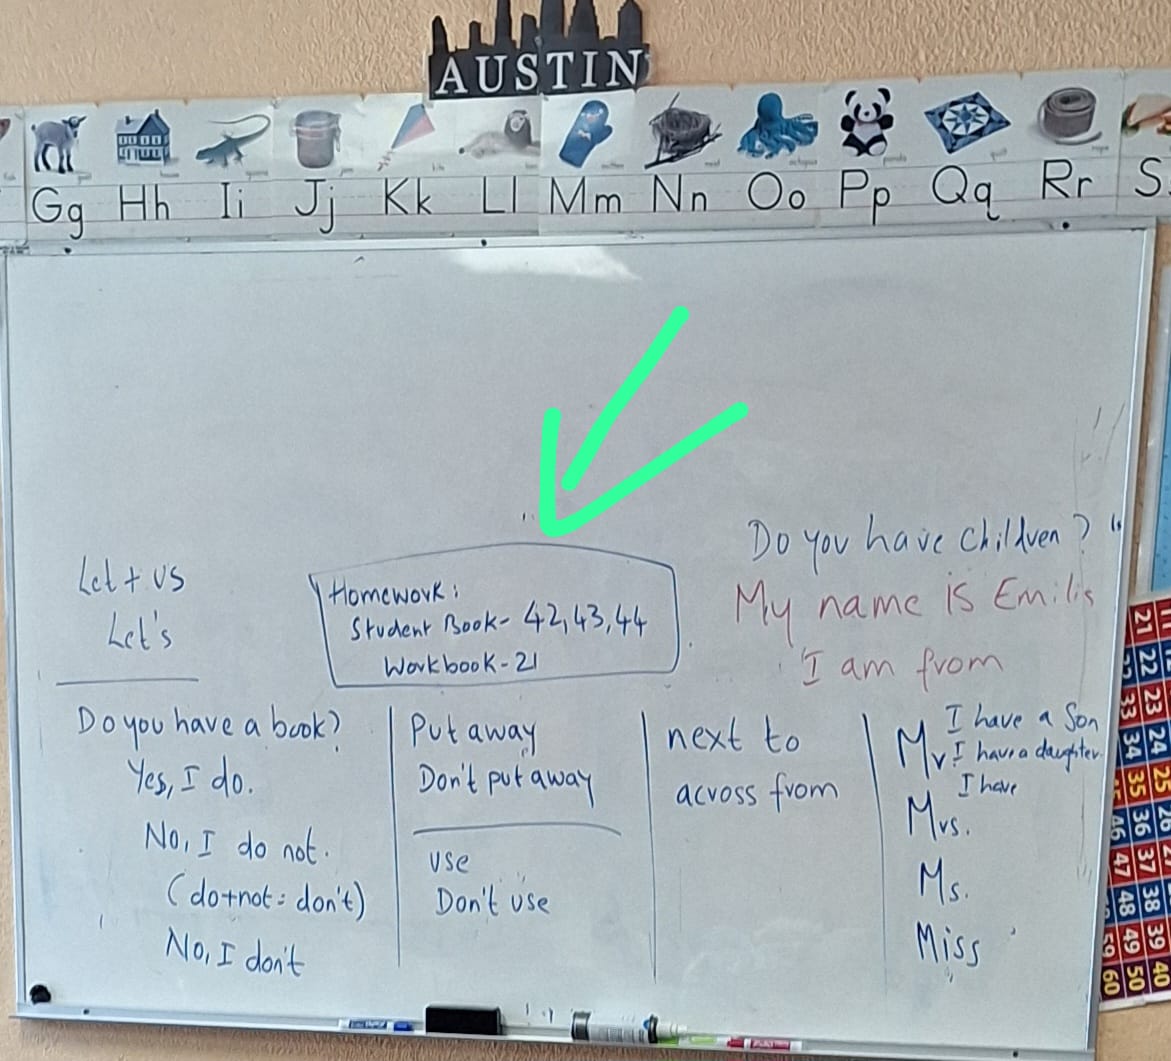 AUSTIN
Gg Hh Ii Jj Kk Ll Mm Nn Oo Pp Qq Rr S
Let + us
Let's
Homework:
Student Book- 42,43,44
Workbook-21
Do you have children?
My name is Emilis
I am from
Do you have a book?
Yes, I do.
No, I do not.
(do+not = don't)
No, I don't
Put away
Don't put away
use
Don't use
next to
across from
Mr.
I have a son
I have a daughter
I have
Mrs.
Ms.
Miss
21 22 23 24 25
33 34 35 36 37 38 39 40
46 47 48 49 50
59 60